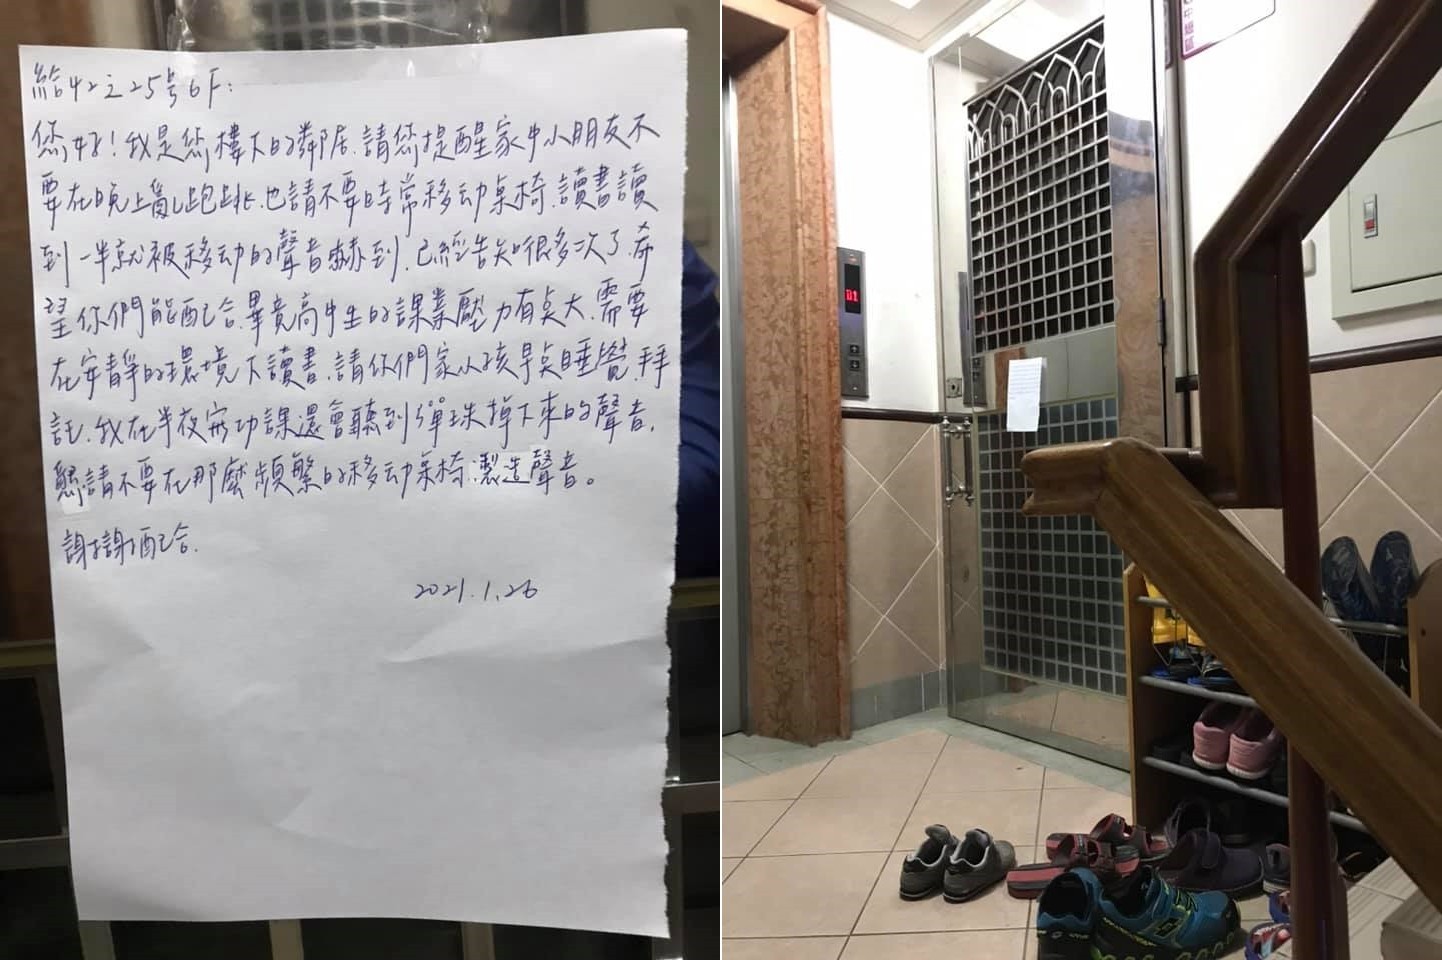 給42之25号6F:
您好!我是您樓下的鄰居.請您提醒家中小朋友不
要在晚上亂跑跳.也請不要時常移动桌椅.讀書讀
到一半就被移动的聲音嚇到.已經告知很多次了.希
望你們能配合.畢竟高中生的課業壓力有点大.需要
在安靜的環境下讀書.請你們家小孩早点睡覺.拜
託.我在半夜寫功課還會聽到彈珠掉下來的聲音.
懇請不要在那麼頻繁的移动桌椅.製造聲音。
謝謝配合.
2021.1.26